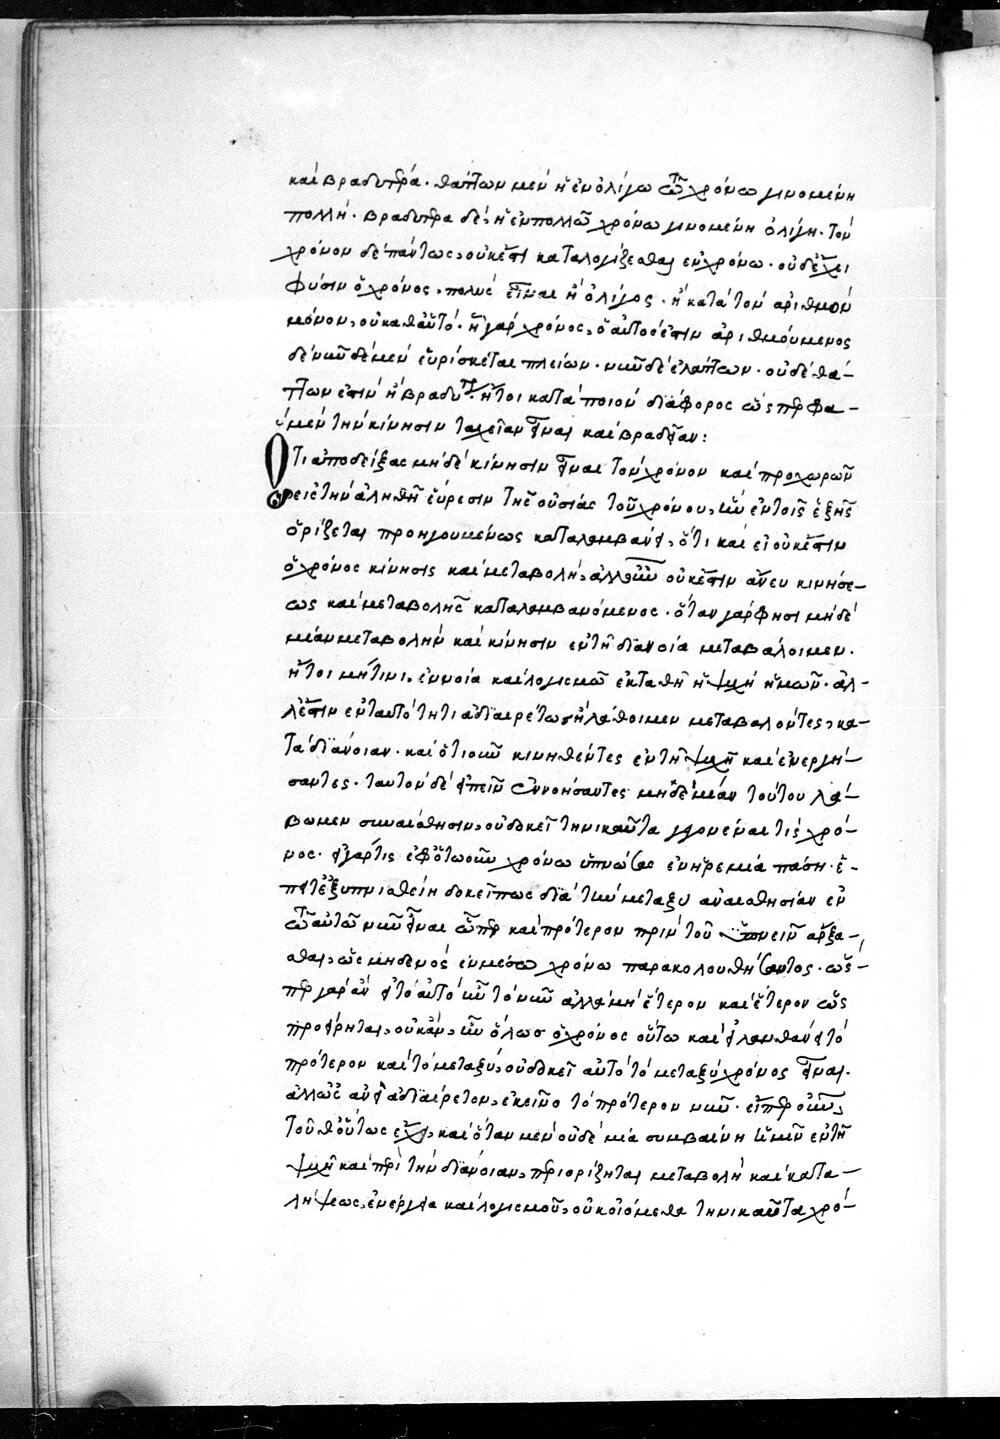 καὶ βραδυτέρα· θάττων μὲν ἡ ἐν ὀλίγω τῶ χρόνω γινομένη
πολλή· βραδυτέρα δέ, ἡ ἐν πολλῶ χρόνω γινομένη ὀλίγη· τὸν
χρόνον δὲ πάντως, οὐκ ἔστι καταλογίζεσθαι ἐν χρόνω· οὐδ' ἔχει
φύσιν ὁ χρόνος, πολὺς εἶναι ἢ ὀλίγος· ἢ κατὰ τὸν ἀριθμὸν
μόνον, οὐ καθ' αὑτό· ἢ γὰρ χρόνος, ὁ αὐτός ἐστιν ἀριθμούμενος
δὲ νῦν δὲ μὲν εὑρίσκεται πλείων· νῦν δὲ ἐλάττων· οὐδὲ θά-
ττων ἐστὶν ἢ βραδύτερος· ἤτοι κατὰ ποιὸν διάφορος ὥσπερ φα-
μὲν τὴν κίνησιν ταχεῖαν εἶναι καὶ βραδεῖαν:
Ὅτι ἀποδείξας μηδὲ κίνησιν εἶναι τὸν χρόνον καὶ προχωρῶν
εἰς τὴν ἀληθῆ εὕρεσιν τῆς οὐσίας τοῦ χρόνου, ἣν ἐν τοῖς ἑξῆς
ὁρίζεται προηγουμένως καταλαμβάνει, ὅτι καὶ εἰ οὐκ ἔστιν
ὁ χρόνος κίνησις καὶ μεταβολή, ἀλλ' οὖν οὐκ ἔστιν ἄνευ κινήσε-
ως καὶ μεταβολῆς καταλαμβανόμενος· ὅταν γὰρ φησι μηδὲ
μίαν μεταβολὴν καὶ κίνησιν ἐν τῆ διανοία μεταβάλοιμεν·
ἤτοι μήτινι, ἐννοία καὶ λογισμῶ ἐκταθῆ ἡ ψυχὴ ἡμῶν· ἀλ-
λ' ἔστιν ἐν ταυτότητι ἀδιαιρέτως ἢ λάθοιμεν μεταβαλόντες, κα-
τὰ διάνοιαν· καὶ ὁτιοῦν κινηθέντες ἐν τῆ ψυχῆ καὶ ἐνεργή-
σαντες· ταυτὸν δὲ εἰπεῖν ἐννοήσαντες μηδεμίαν τούτου λά-
βωμεν συναίσθησιν, οὐ δοκεῖ τηνικαῦτα γεγονέναι τίς χρό-
νος· εἰ γάρ τις ἐφ' ὁτωοῦν χρόνω ὑπνώσας ἐν ἠρεμία πάση· ἔ-
πειτ' ἐξυπνισθείη δοκεῖ πως διὰ τὴν μεταξὺ ἀναισθησίαν ἐν
τῶ αὐτῶ νῦν εἶναι ὧπερ καὶ πρότερον πρὶν τοῦ ὑπνεῖν ἄρξα-
σθαι, ὡς μηδενὸς ἐν μέσω χρόνω παρακολουθήσαντος· ὥσ-
περ γὰρ ἂν εἰ τὸ αὐτὸ ἦν τὸ νῦν ἀλλὰ μὴ ἕτερον καὶ ἕτερον ὡς
προείρηται, οὐκ ἂν, ἦν ὅλως ὁ χρόνος οὕτω καὶ εἰ λανθάνει τὸ
πρότερον καὶ τὸ μεταξύ, οὐ δοκεῖ αὐτὸ τὸ μεταξὺ χρόνος εἶναι·
ἀλλ' ὡς ἂν εἰ ἀδιαίρετον, ἐκεῖνο τὸ πρότερον νῦν· εἴπερ οὖν,
τοῦθ' οὕτως ἔχει, καὶ ὅταν μὲν οὐδεμία συμβαίνη ἡμῖν ἐν τῆ
ψυχῆ καὶ περὶ τὴν διάνοιαν, περιορίζηται μεταβολὴ καὶ κατα-
λήψεως, ἐνέργεια καὶ λογισμοῦ, οὐκ οἰόμεθα τηνικαῦτα χρό-